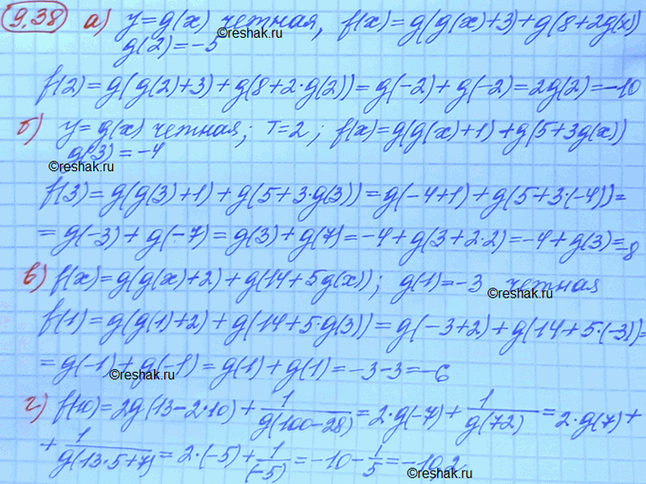 9.38 а) y=g(x) четная, f(x)=g(g(x)+3)+g(8+2g(x))
g(2)=-5 ©reshak.ru
f(2)=g(g(2)+3)+g(8+2·g(2))=g(-2)+g(-2)=2g(2)=-10
б) y=g(x) четная; T=2; f(x)=g(g(x)+1)+g(5+3g(x))
g(3)=-4
©reshak.ru
f(3)=g(g(3)+1)+g(5+3·g(3))=g(-4+1)+g(5+3·(-4))=
=g(-3)+g(-7)=g(3)+g(7)=-4+g(3+2·2)=-4+g(3)=-8
в) f(x)=g(g(x)+2)+g(14+5g(x)); g(1)=-3 четная
©reshak.ru
f(1)=g(g(1)+2)+g(14+5·g(3))=g(-3+2)+g(14+5·(-3))=
=g(-1)+g(-1)=g(1)+g(1)=-3-3=-6
©reshak.ru
г) f(10)=2g(13-2·10)+1/g(100-28)=2·g(-7)+1/g(72)=2·g(7)+
+1/g(13·5+7)=2·(-5)+1/(-5)=-10-1/5=-10,2
©reshak.ru